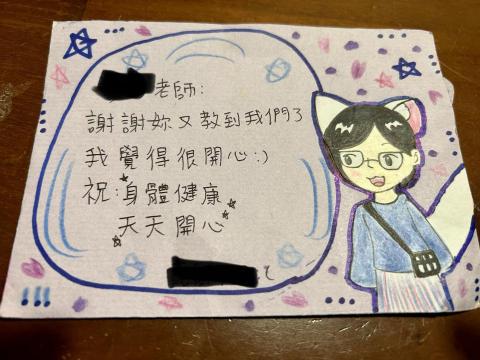 老師:
謝謝妳又教到我們了
我覺得很開心:)
祝:身體健康
天天開心